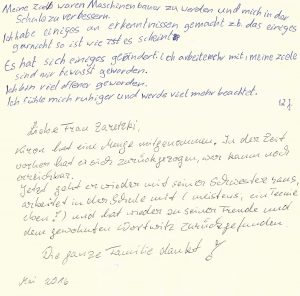 Meine ziele waren Maschinenbauer zu werden und mich in der
Schule zu verbessern.
Ich habe einiges an erkenntnissen gemacht z.b. das einiges
garnicht so ist wie es scheint
Es hat sich einiges geändert: ich arbeite mehr mit, meine ziele
sind mir bewusst geworden.
Ich bin viel offener geworden.
Ich fühle mich ruhiger und werde viel mehr beachtet.
12 J.
Liebe Frau Zaretzki,
hat eine Menge mitgenommen. In der Zeit
vorher hat er sich zurückgezogen, war kaum noch
erreichbar.
Jetzt geht er wieder mit seiner Schwester raus,
arbeitet in der Schule mit (meistens, ein Teenie
eben!) und hat wieder zu seiner Freude und
dem gewohnten Wortwitz zurückgefunden.
Die ganze Familie dankt
Mai 2016